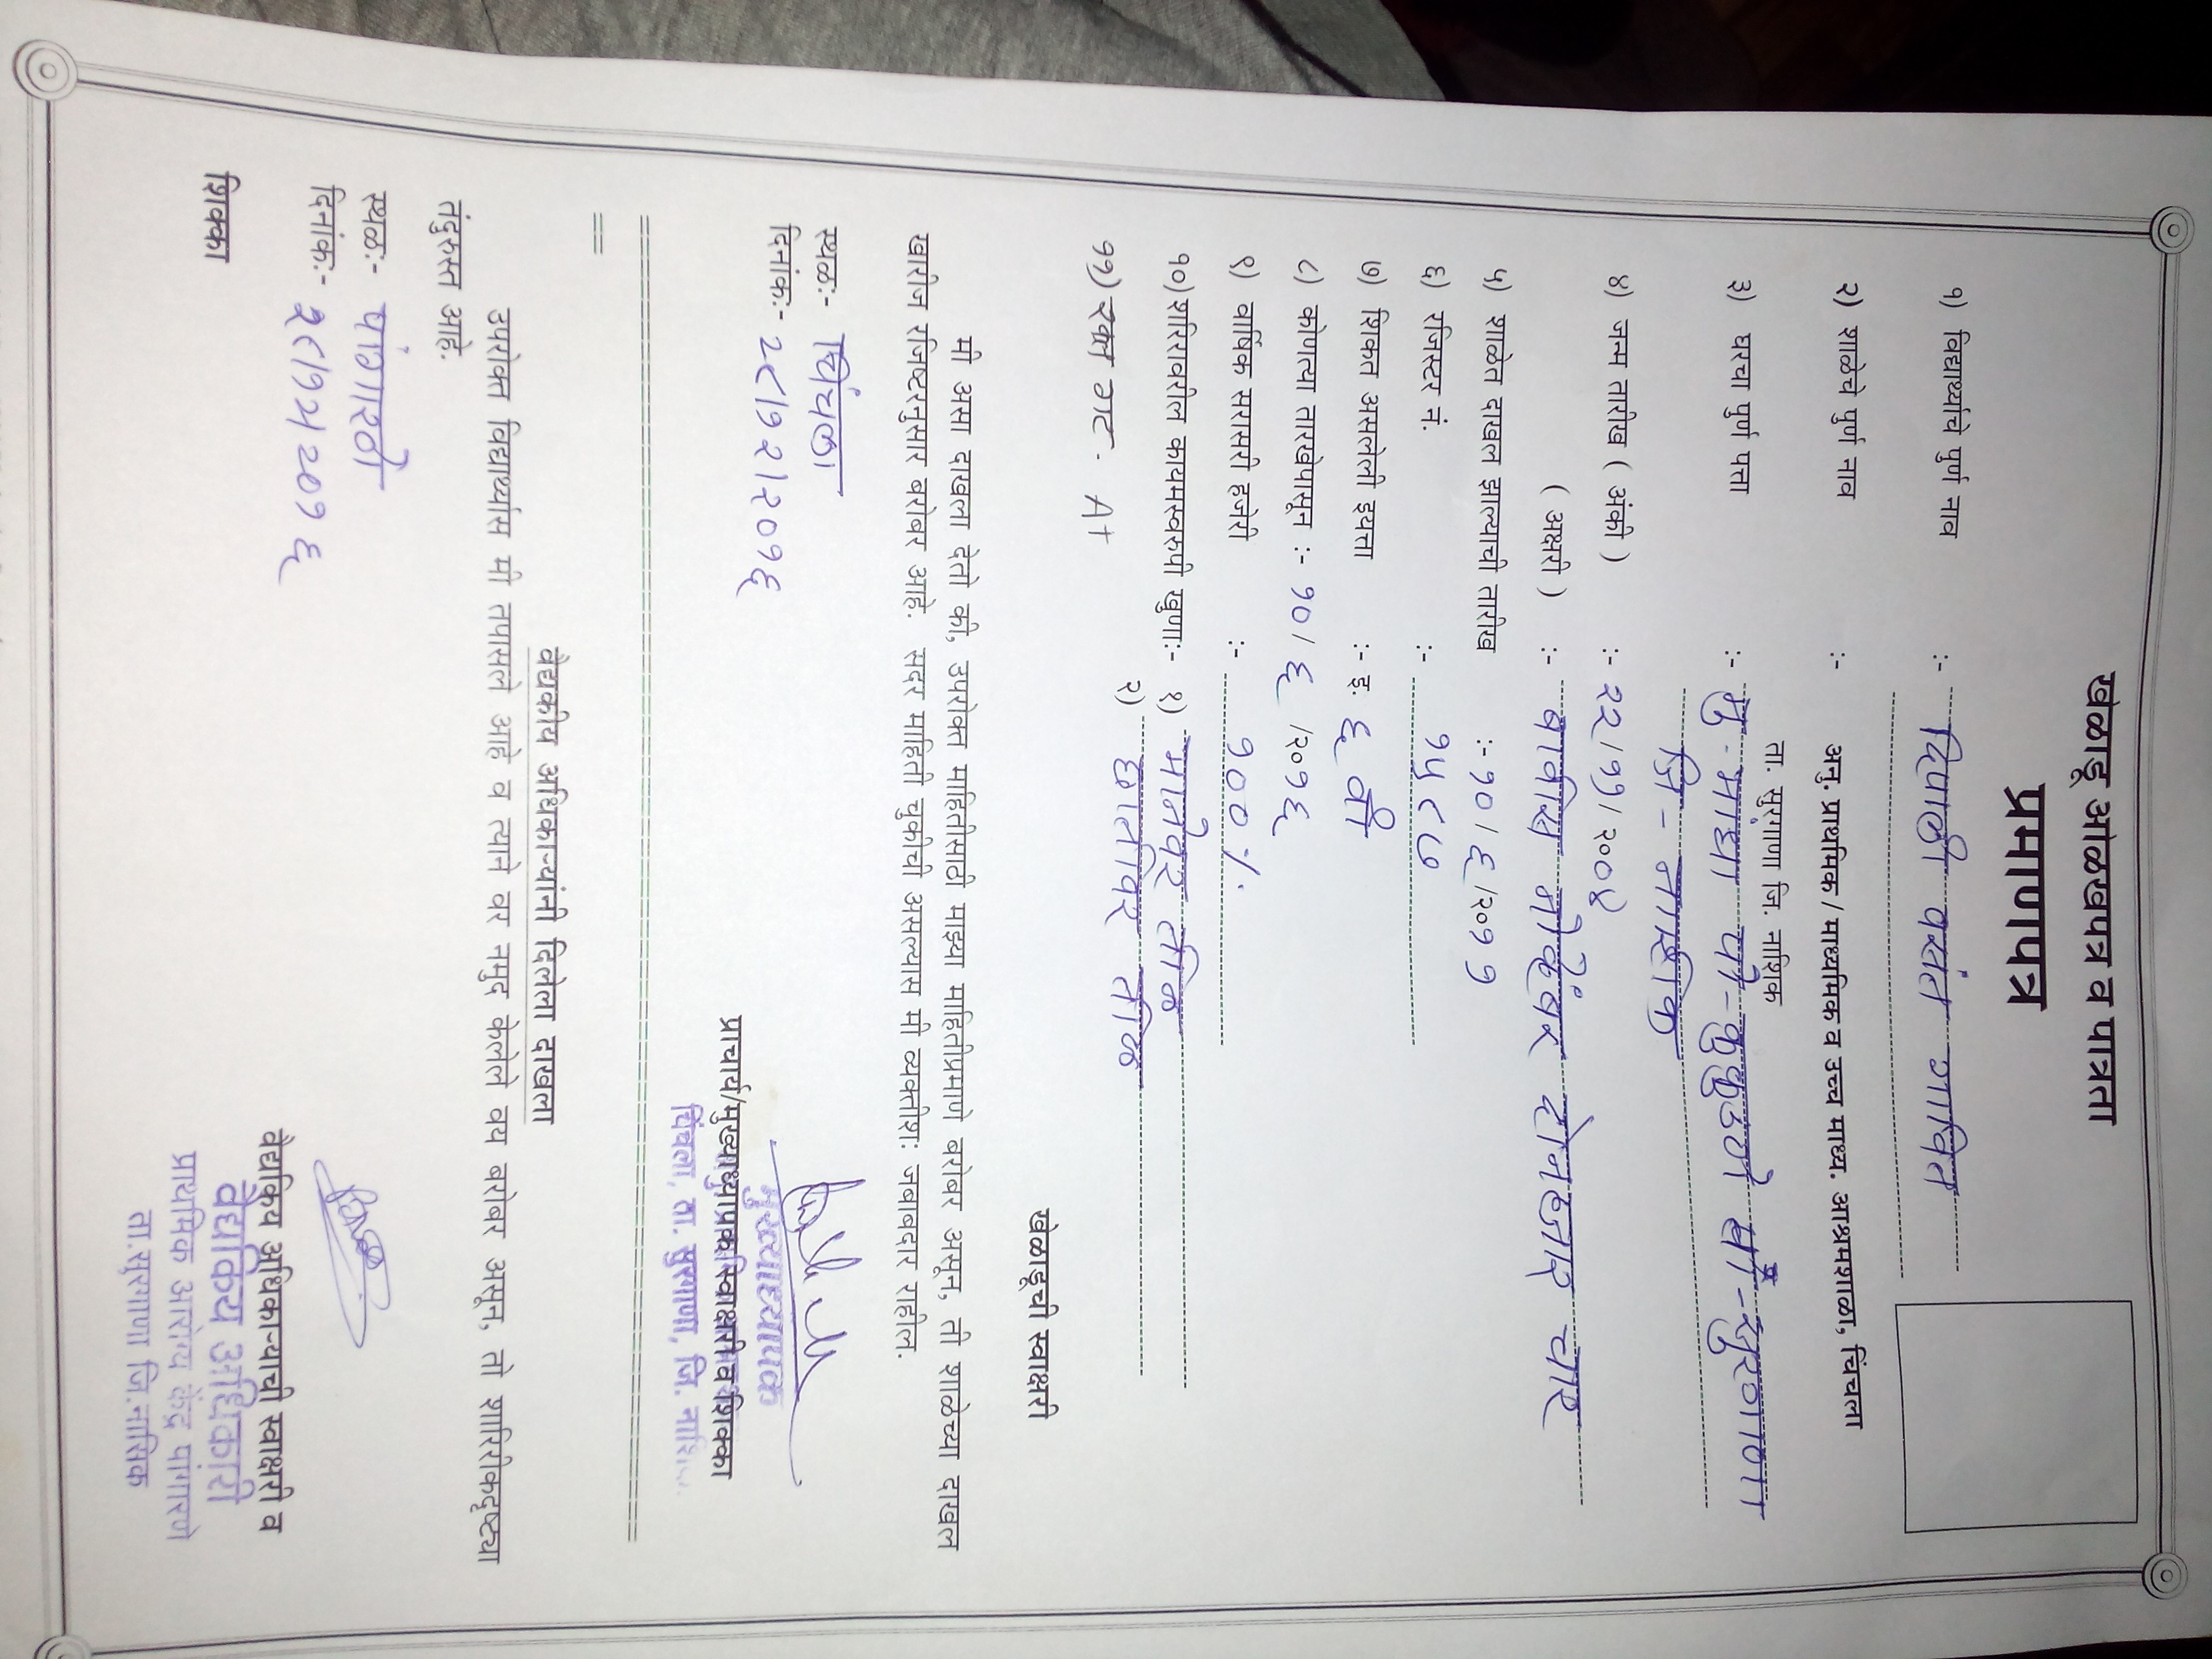 खेळाडू ओळखपत्र व पात्रता
प्रमाणपत्र
१) विद्यार्थ्याचे पुर्ण नाव :- दिपाली वसंत गावित
२) शाळेचे पुर्ण नाव :- अनु. प्राथमिक / माध्यमिक व उच्च माध्य. आश्रमशाळा, चिंचला
ता. सुरगाणा जि. नाशिक
३) घरचा पुर्ण पत्ता :- मु. भाधा पो - कुकुडणे ता - सुरगाणा
जि - नाशिक
४) जन्म तारीख ( अंकी ) :- २२/११/२००४
( अक्षरी ) :- बावीस नोव्हेंबर दोनहजार चार
५) शाळेत दाखल झाल्याची तारीख :- १०/६/२०११
६) रजिस्टर नं. :- १५८७
७) शिकत असलेली इयत्ता :- इ. ६ वी
८) कोणत्या तारखेपासून :- १०/६/२०१६
९) वार्षिक सरासरी हजेरी :- १००%.
१०) शरिरावरील कायमस्वरुपी खुणा:- १) मानेवर तीळ
२) छातीवर तीळ
११) रक्त गट. A+
खेळाडूची स्वाक्षरी
मी असा दाखला देतो की, उपरोक्त माहितीसाठी माझ्या माहितीप्रमाणे बरोबर असून, ती शाळेच्या दाखल
खारीज रजिष्टरनुसार बरोबर आहे. सदर माहिती चुकीची असल्यास मी व्यक्तीशः जबाबदार राहील.
स्थळ:- चिंचला
दिनांक:- २८/१२/२०१६
मुख्याध्यापक
प्राचार्य/मुख्याध्यापक स्वाक्षरी व शिक्का
चिंचला, ता. सुरगाणा, जि. नाशि
वेद्यकीय अधिकाऱ्यांनी दिलेला दाखला
उपरोक्त विद्यार्थ्यास मी तपासले आहे व त्याने वर नमुद केलेले वय बरोबर असून, तो शारिरीकदृष्ट्या
तंदुरुस्त आहे.
स्थळ:- पांगारणे
दिनांक:- २८/१२/२०१६
वेद्यकिय अधिकाऱ्याची स्वाक्षरी व
शिक्का
वैद्यकिय अधिकारी
प्राथमिक आरोग्य केंद्र पांगारणे
ता.सुरगाणा जि.नासिक